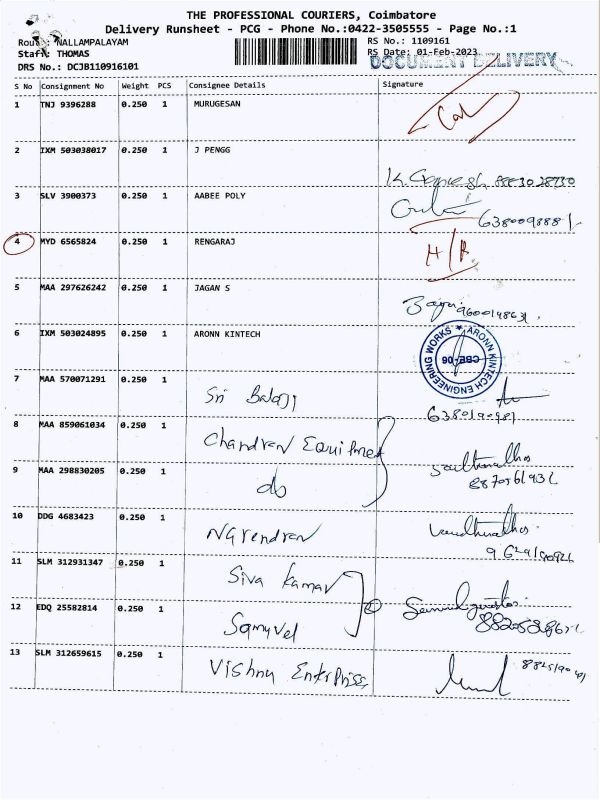 THE PROFESSIONAL COURIERS, Coimbatore
Delivery Runsheet - PCG - Phone No.:0422-3505555 - Page No.:1
Route: NALLAMPALAYAM RS No.: 1109161
Staff: THOMAS RS Date: 01-Feb-2023
DRS No.: DCJB110916101 DOCUMENT DELIVERY
S No Consignment No Weight PCS Consignee Details Signature
1 TNJ 9396288 0.250 1 MURUGESAN
2 IXM 503038017 0.250 1 J PENGG
K. Ganesh
3 SLV 3900373 0.250 1 AABEE POLY
4 MYD 6565824 0.250 1 RENGARAJ H/R
5 MAA 297626242 0.250 1 JAGAN S
6 IXM 503024895 0.250 1 ARONN KINTECH
ARONN KINTECH ENGINEERING WORKS
CBE-06
7 MAA 570071291 0.250 1 Sri Balaji
8 MAA 859061034 0.250 1 Chandran Equipmet
9 MAA 298830205 0.250 1 do
10 DDG 4683423 0.250 1 Narendran
11 SLM 312931347 0.250 1 Siva Kumar
12 EDQ 25582814 0.250 1 Samuvel
13 SLM 312659615 0.250 1 Vishnu Enterprises